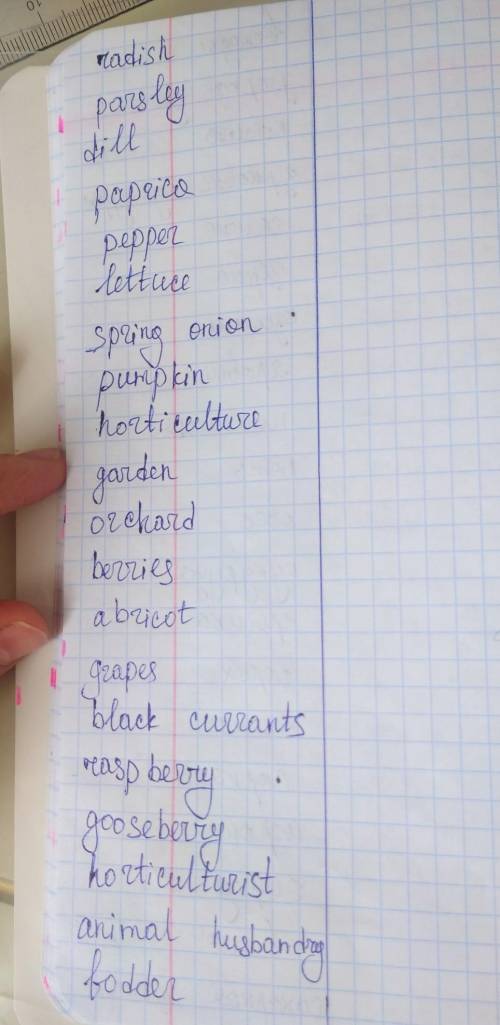 radish
parsley
dill
paprica
pepper
lettuce
spring onion
pumpkin
horticulture
garden
orchard
berries
abricot
grapes
black currants
raspberry
gooseberry
horticulturist
animal husbandry
fodder